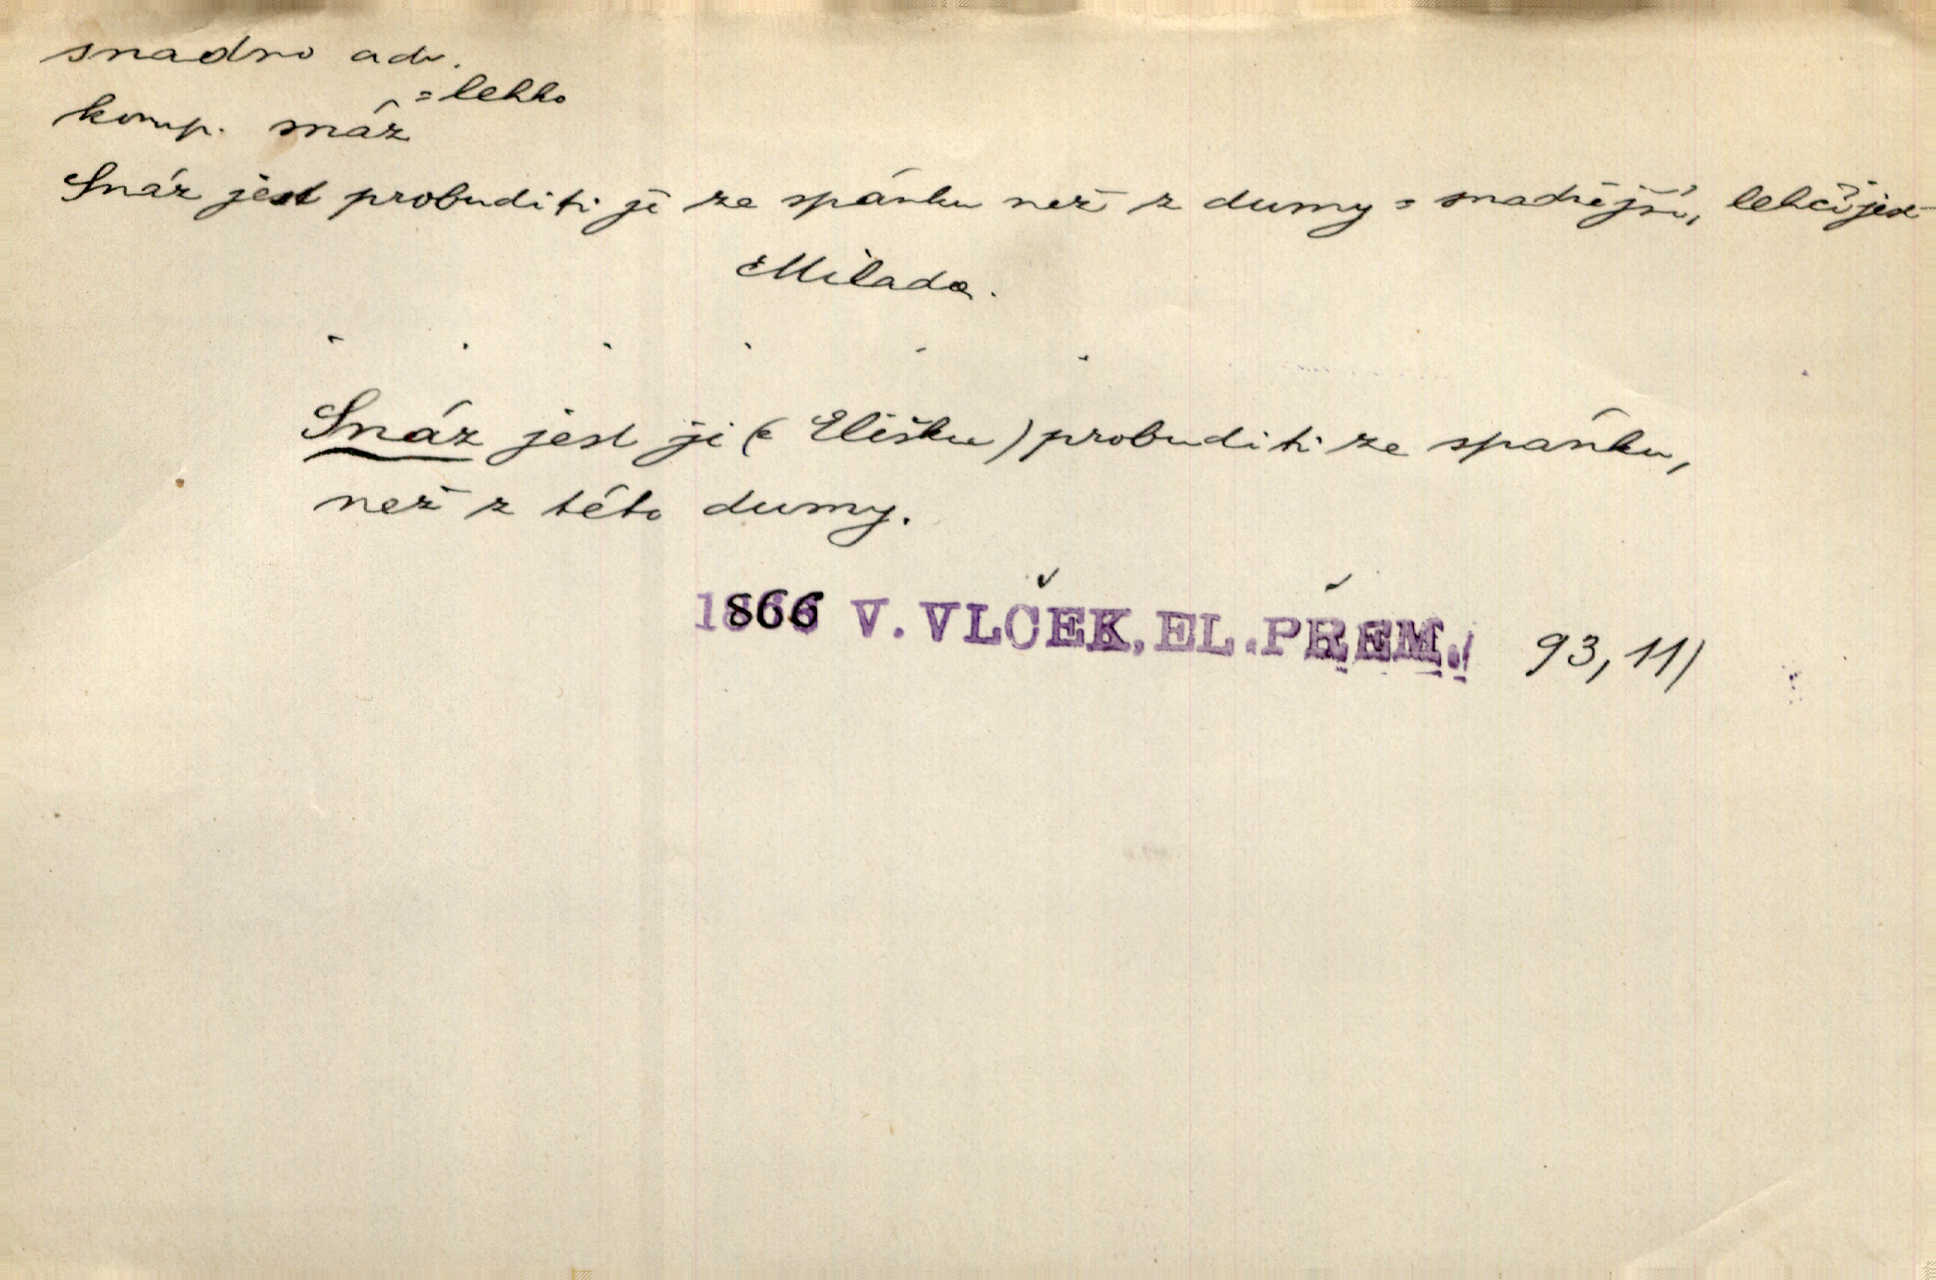 snadno adv.
= lehko
komp. snáz
Snáz jest probuditi ji ze spánku než z dumy = snadnější, lehčí jest
Milada.
Snáz jest ji (= Elišku) probuditi ze spánku,
než z této dumy.
1866 V. VLČEK, EL. PŘEM. 93, 11)